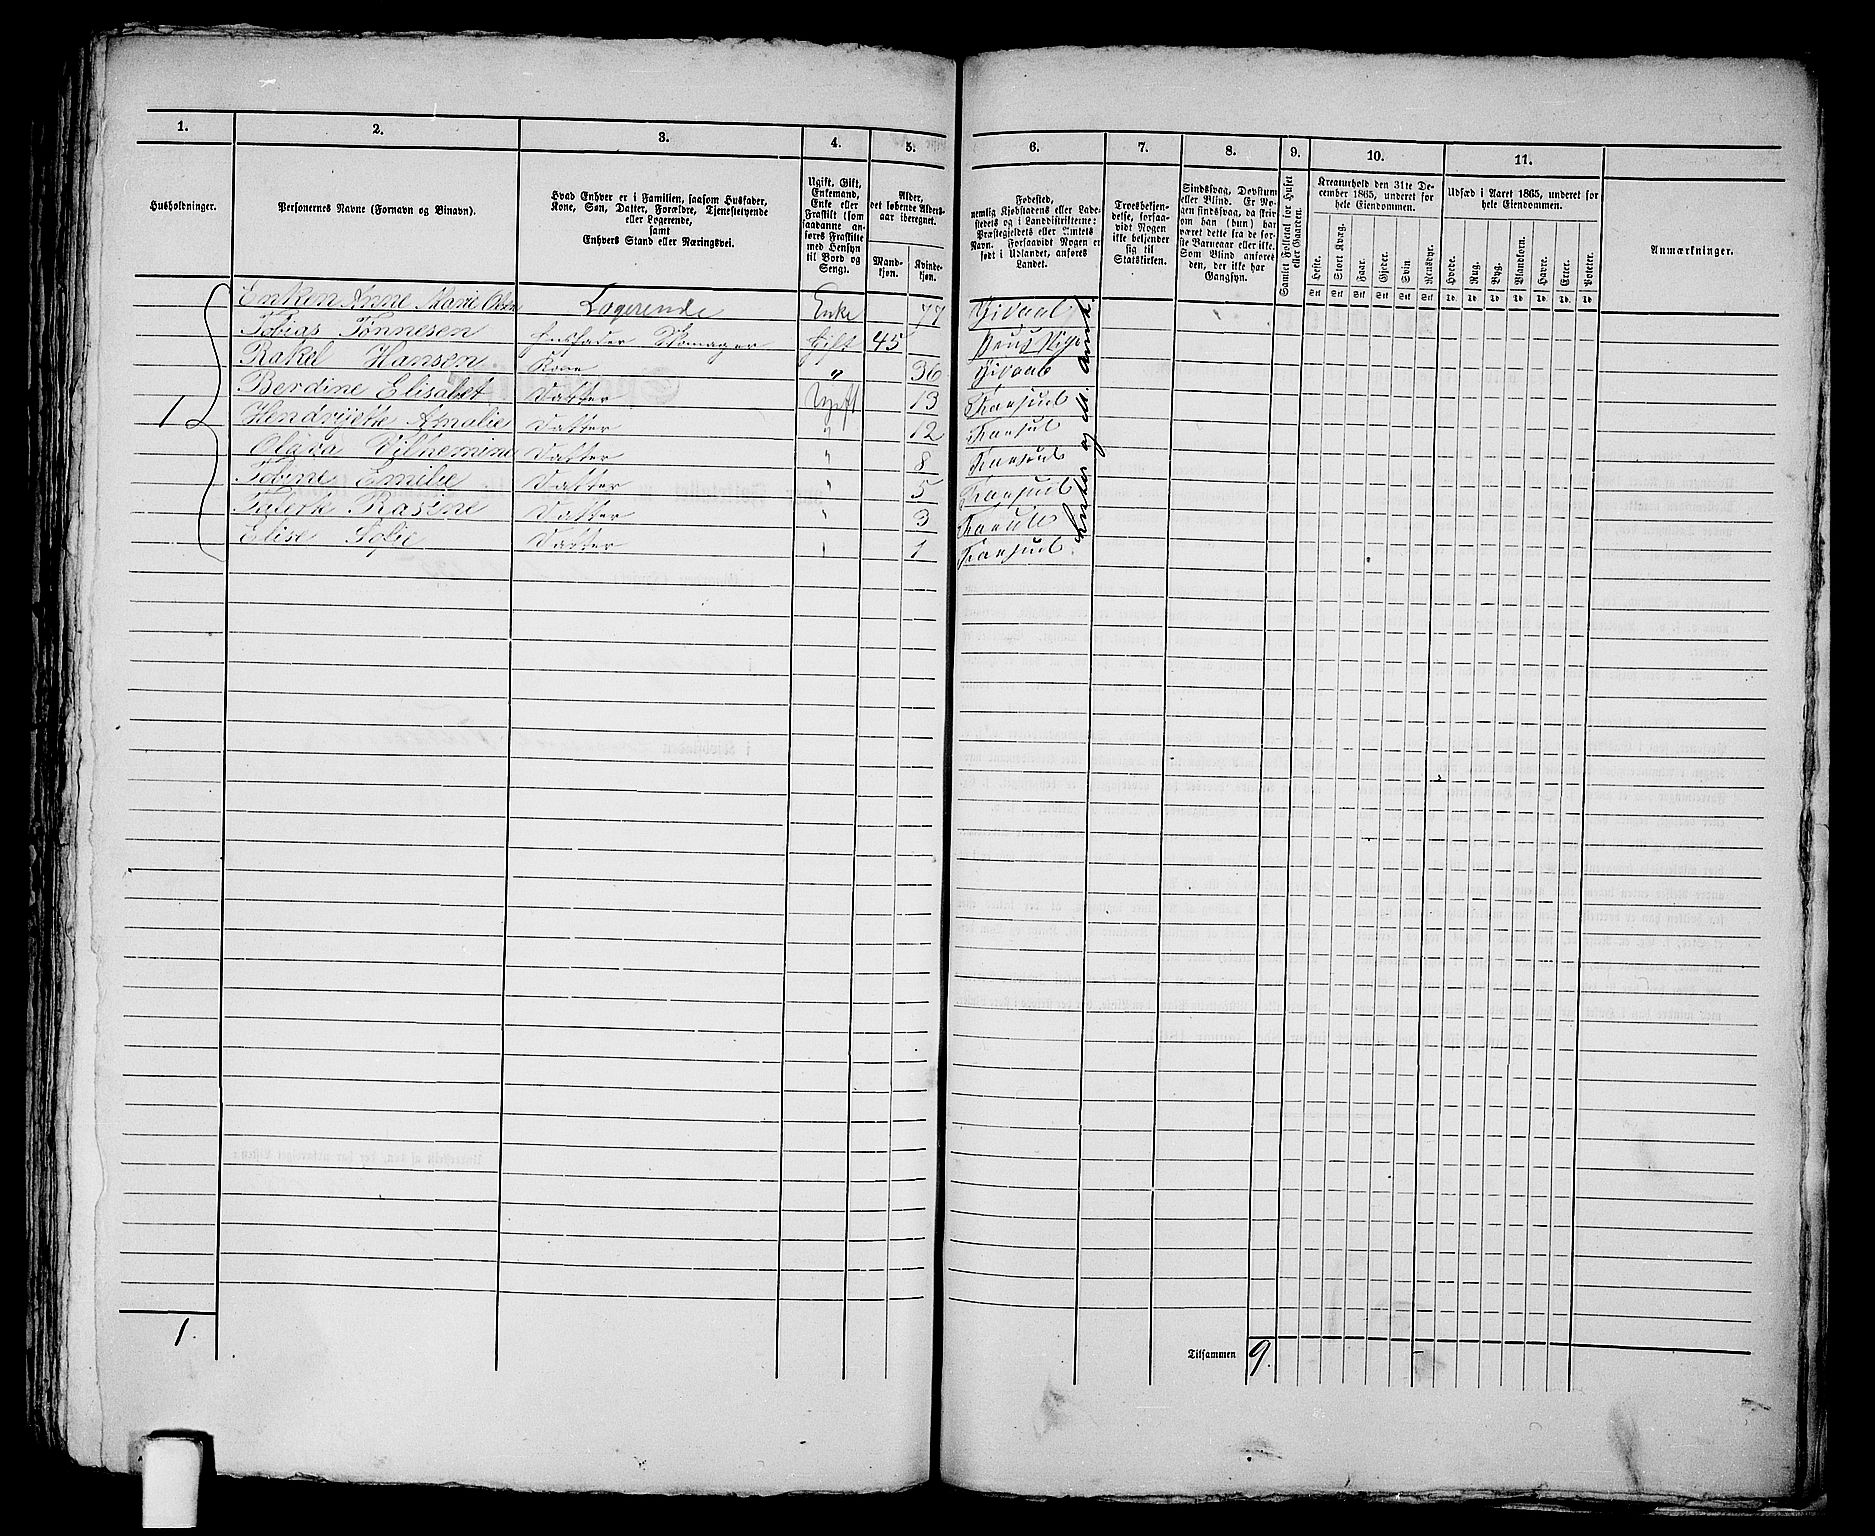 1.
2.
3.
4.
5.
6.
7.
8.
9.
10.
11.
Husholdninger.
Personernes Navne (Fornavn og Binavn).
Hvad Enhver er i Familien, saasom Husfader,
Kone, Søn, Datter, Forældre, Tjenestetyende
eller Logerende,
samt
Enhvers Stand eller Næringsvei.
Ugift, Gift,
Enkemand,
Enke eller
Fraskilt (som
saadanne an-
føres Fraskilte
med Hensyn
til Bord og
Seng).
Alder,
det løbende Alders-
aar iberegnet.
Mand-
kjøn.
Kvinde-
kjøn.
Fødested,
nemlig Kjøbstadens eller Lade-
stedets og i Landdistrikterne:
Præstegjeldets eller Amtets
Navn. Forsaavidt Nogen er
født i Udlandet, anføres
Landet.
Troesbekjen-
delse, forsaa-
vidt Nogen
ikke bekjender
sig til
Statskirken.
Sindssvag, Døvstum
eller Blind. Er No-
gen sindssvag, da skri-
ves om han (hun) har
været dette fra de før-
ste Barneaar eller ikke.
Som Blind anføres
den, der ikke har
Gangsyn.
Samlet Folketal for Huset
eller Gaarden.
Kreaturhold den 31te De-
cember 1865, underet for
hele Eiendommen.
Heste.
Stort Kvæg.
Faar.
Gjeder.
Svin
Rensdyr.
Udsæd i Aaret 1865, underet for
hele Eiendommen.
Hvede.
Rug.
Byg.
Blandkorn.
Havre.
Erter.
Poteter.
Anmærkninger.
Stk Stk Stk Stk Stk Stk Td. Td. Td. Td. Td. Td. Td.
Enken Anne Marie Olsen Logerende Enke 77
Tobias Tønnesen Gift 45
Rakel Hansen Kone " 36
Berdine Elisabet Datter Ugift 13
1 Hendrijette Amalie Datter " 12
Olava Vilhemine Datter " 8
Tobine Emilie Datter " 5
Rasine Datter " 3
Elise Sofie Datter " 1
og M. Amt.
1.
Tilsammen 9.